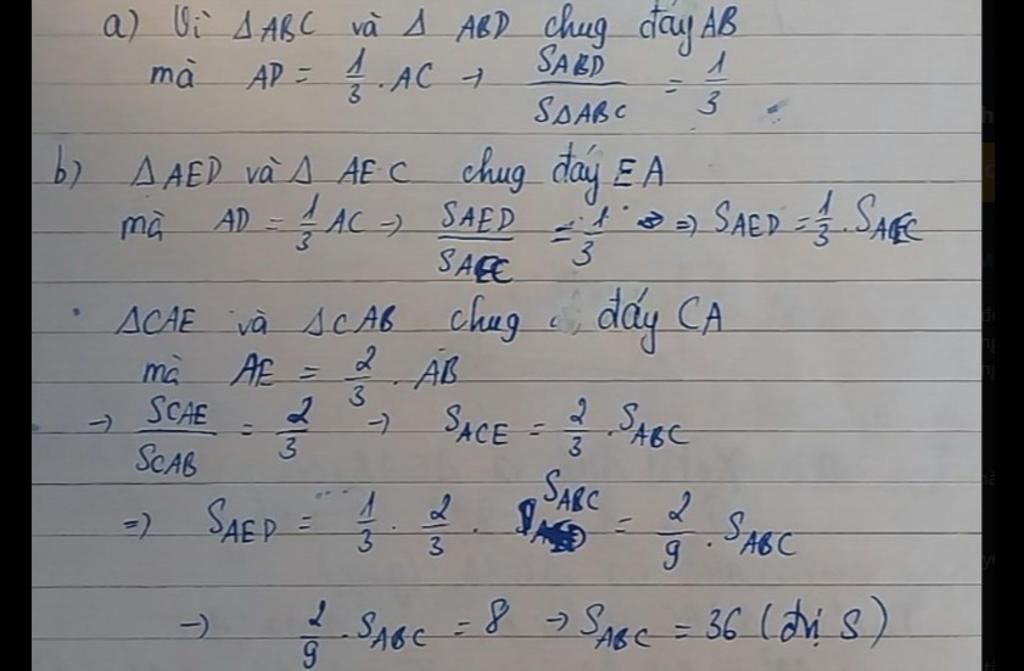 a) Vì ΔABC và Δ ABD chug đáy AB
mà AD = 1/3 . AC → SABD/SΔABC = 1/3
b) ΔAED và Δ AEC chug đáy EA
mà AD = 1/3 AC → SAED/SAEC = 1/3 => SAED = 1/3 . SAEC
ΔCAE và ΔCAB chug đáy CA
mà AE = 2/3 . AB
→ SCAE/SCAB = 2/3 → SACE = 2/3 . SABC
=> SAED = 1/3 . 2/3 . SABC = 2/9 . SABC
→ 2/9 . SABC = 8 → SABC = 36 (đvị S)